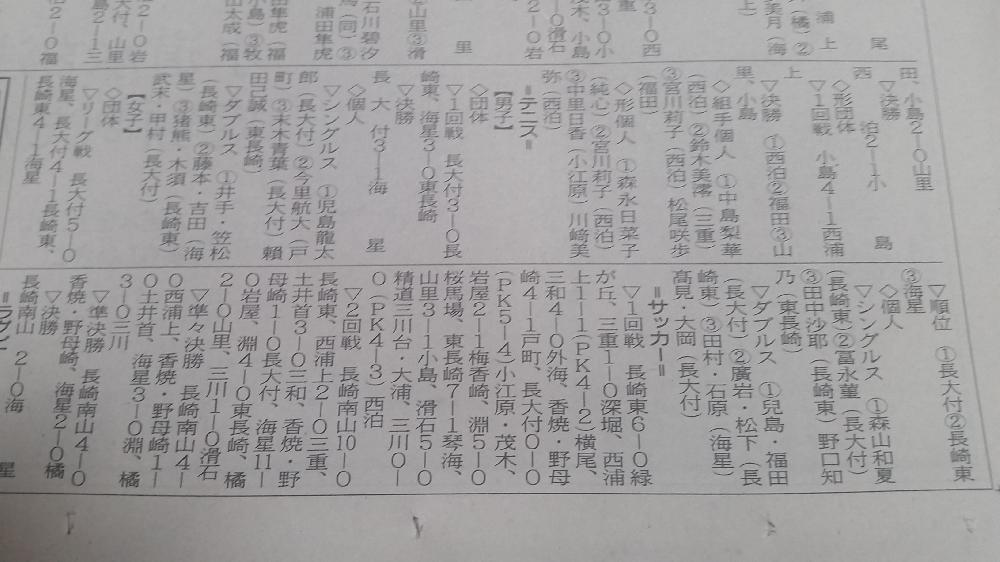 尾
浦上
(橘)②
美月(海
上)
3―0西
重
3―0小
茂木、小島
0滑石
2―0岩
里
②山里③滑
石川碧汐
(同)③
浦田隼虎
田隼虎(福
小島)③牧
山太成(福
2―0岩
大付、山里
島2―1三
2―0福
田、小島2―0山里
▽決勝
西泊2―1小島
◇形団体
▽1回戦 小島4―1西浦
上
▽決勝 ①西泊②福田③山
里、小島
◇組手個人 ①中島梨華
(西泊)②鈴木美澪(三重)
③宮川莉子(西泊)松尾咲歩
(福田)
◇形個人 ①森永日菜子
(純心)②宮川莉子(西泊)
③中里日香(小江原)川﨑美
弥(西泊)
=テニス=
【男子】
◇団体
▽1回戦 長大付3―0長
崎東、海星3―0東長崎
▽決勝
長大付3―1海星
◇個人
▽シングルス ①児島龍太
郎(長大付)②今里航大(戸
町)③末木青葉(長大付)頼
田己誠(東長崎)
▽ダブルス ①井手・笠松
(長崎東)②藤本・吉田(海
星)③猪熊・木須(長崎東)
武末・甲村(長大付)
【女子】
◇団体
▽リーグ戦 長大付5―0
海星、長大付4―1長崎東、
長崎東4―1海星
▽順位 ①長大付②長崎東
③海星
◇個人
▽シングルス ①森山和夏
(長崎東)②冨永菫(長大付)
③田中沙耶(長崎東)野口知
乃(東長崎)
▽ダブルス ①兒島・福田
(長大付)②廣岩・松下(長
崎東)③田村・石原(海星)
髙見・大岡(長大付)
=サッカー=
▽1回戦 長崎東6―0緑
が丘、三重1―0深堀、西浦
上1―1(PK4―2)横尾、
三和4―0外海、香焼・野母
崎4―1戸町、長大付0―0
(PK5―4)小江原・茂木、
岩屋2―1梅香崎、淵5―0
桜馬場、東長崎7―1琴海、
山里3―1小島、滑石5―0
精道三川台・大浦、三川0―
0(PK4―3)西泊
▽2回戦 長崎南山10―0
長崎東、西浦上2―0三重、
土井首3―0三和、香焼・野
母崎1―0長大付、海星11―
0岩屋、淵4―0東長崎、橘
2―0山里、三川1―0滑石
▽準々決勝 長崎南山4―
0西浦上、香焼・野母崎1―
0土井首、海星3―0淵、橘
3―0三川
▽準決勝 長崎南山4―0
香焼・野母崎、海星2―0橘
▽決勝
長崎南山 2―0海星